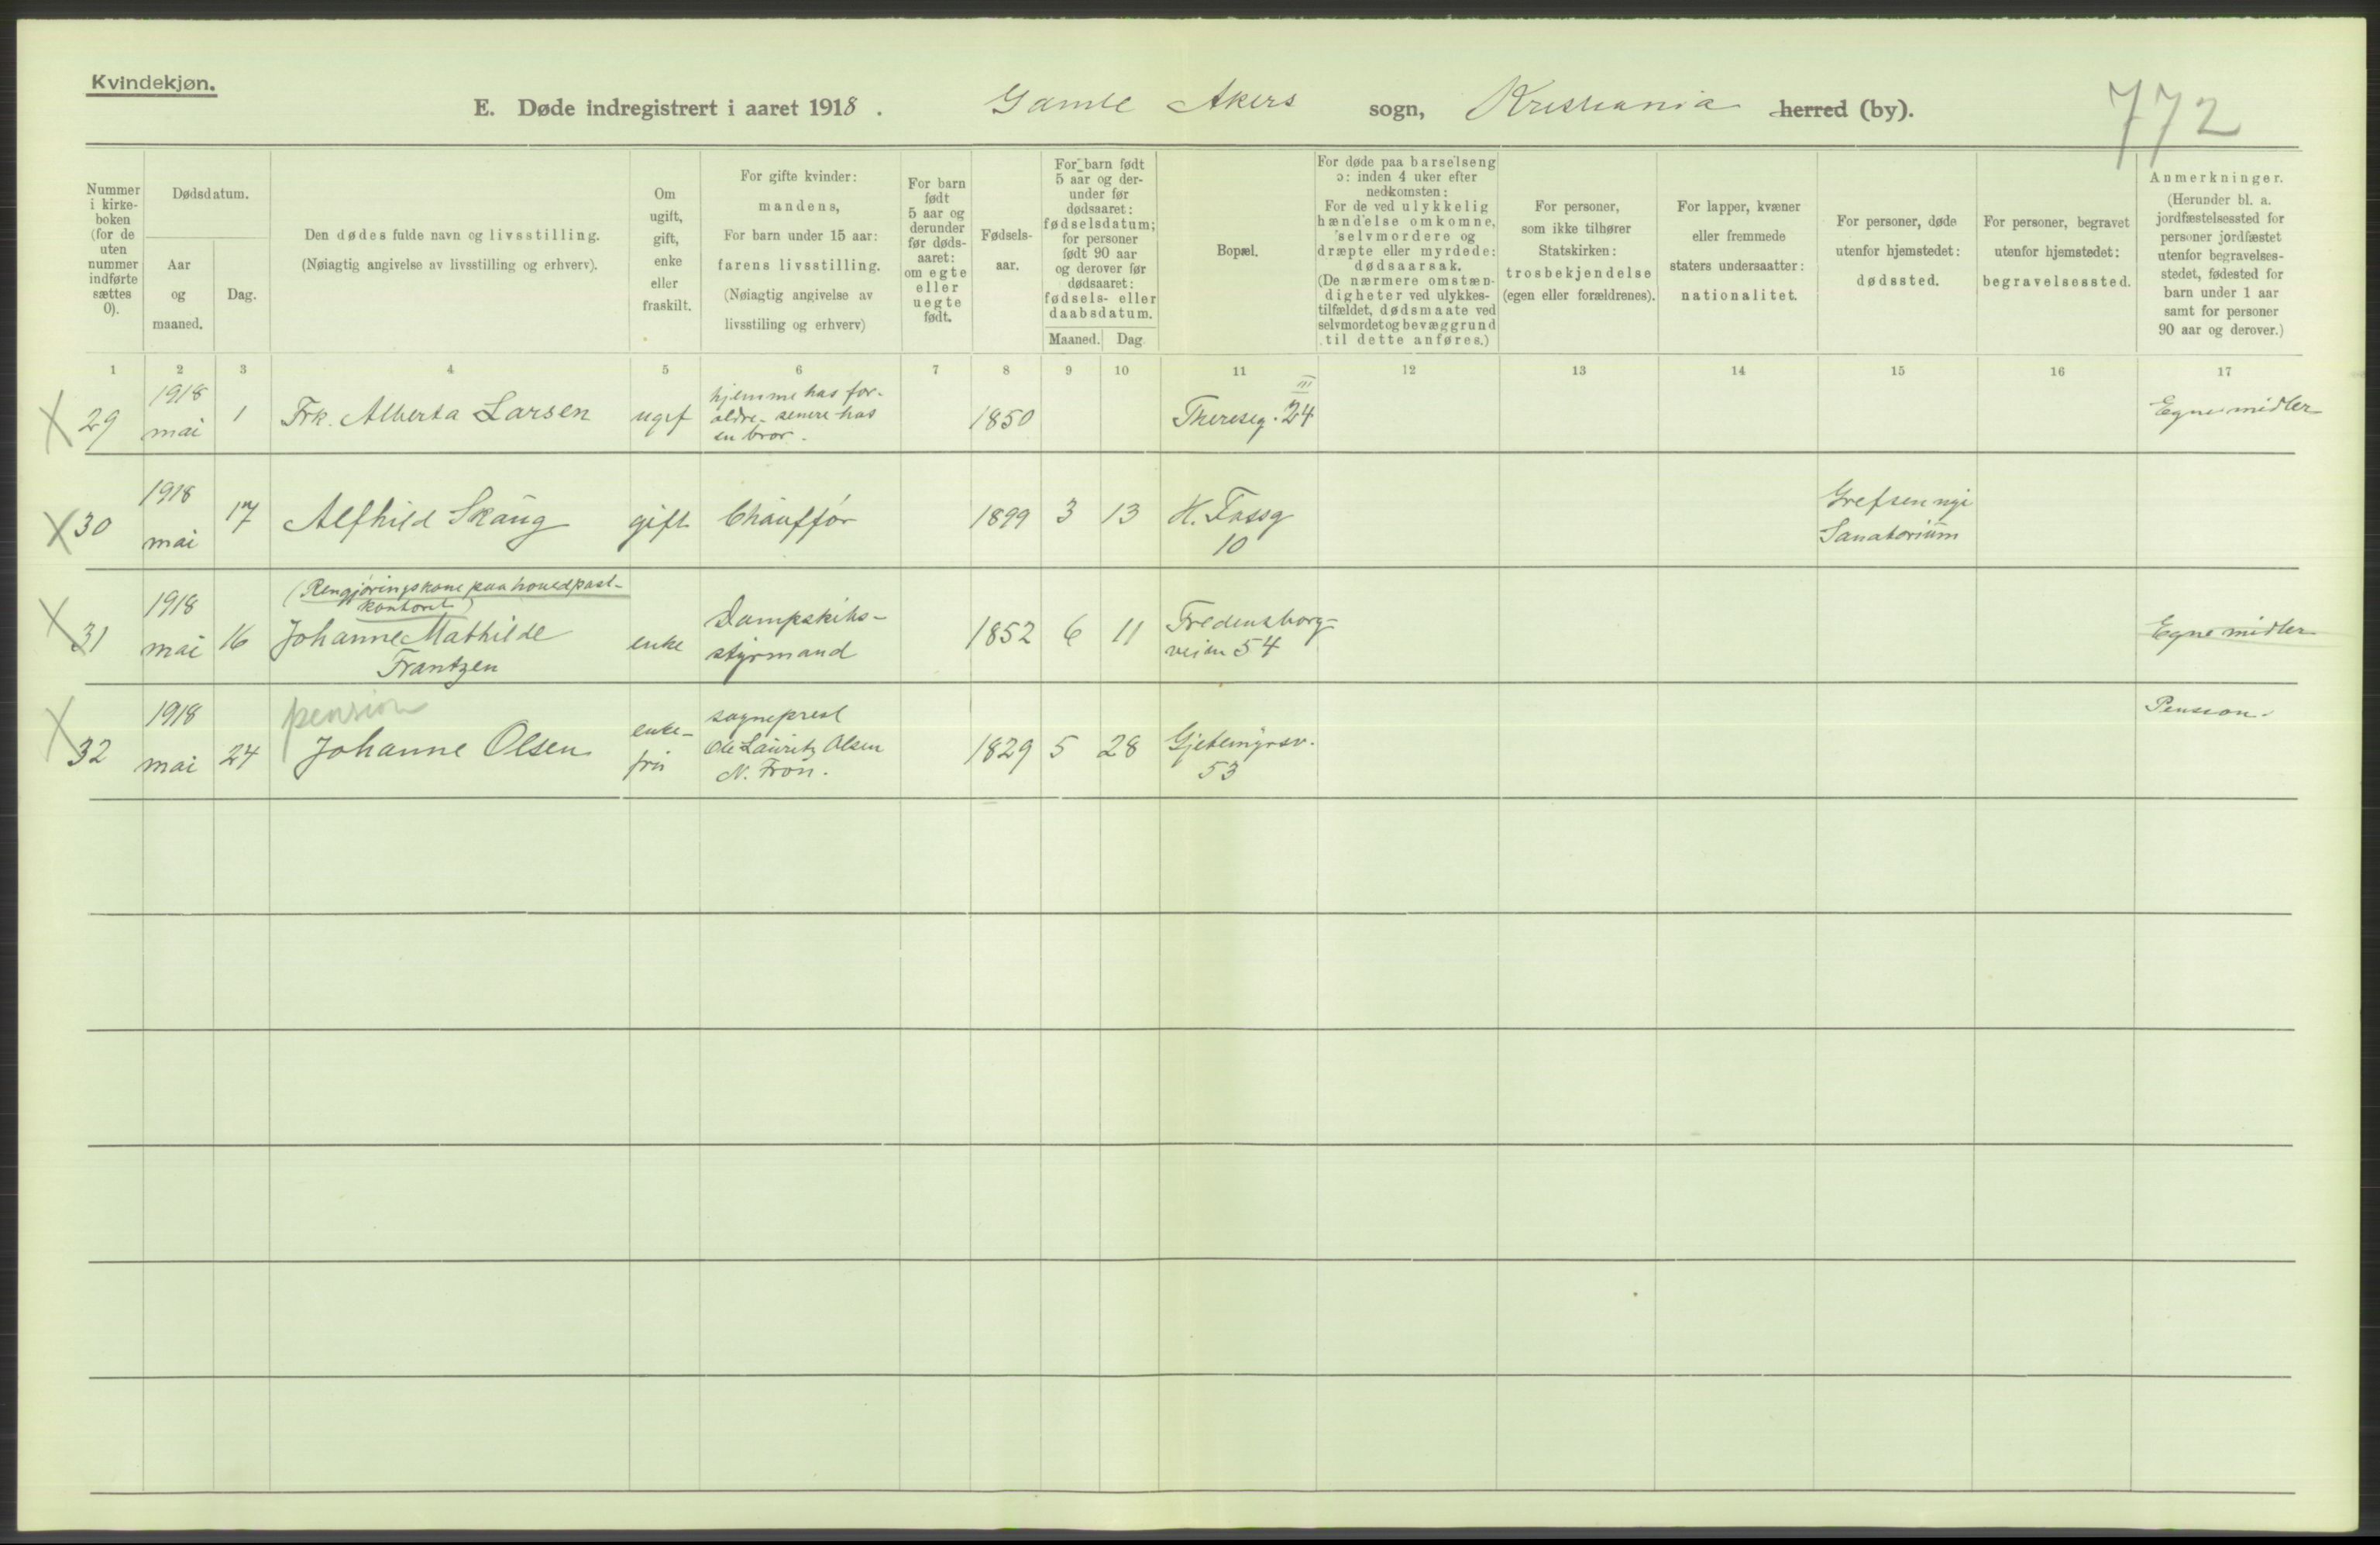 Kvindekjøn.
E. Døde indregistrert i aaret 1918. Gamle Akers sogn, Kristiania herred (by).
772
Nummer i kirke-boken (for de uten nummer indførte sættes 0).
Dødsdatum.
Aar og maaned.
Dag.
Den dødes fulde navn og livsstilling.
(Nøiagtig angivelse av livsstilling og erhverv).
Om ugift, gift, enke eller fraskilt.
For gifte kvinder: mandens,
For barn under 15 aar: farens livsstilling.
(Nøiagtig angivelse av livsstiling og erhverv)
For barn født 5 aar og derunder før døds-aaret: om egte eller uegte født.
Fødsels-aar.
For barn født 5 aar og der-under før dødsaaret: fødselsdatum; for personer født 90 aar og derover før dødsaaret: fødsels- eller daabsdatum.
Maaned. Dag
Bopæl.
For døde paa barselseng ɔ: inden 4 uker efter nedkomsten: For de ved ulykkelig hændelse omkomne, selvmordere og dræpte eller myrdede: dødsaarsak. (De nærmere omstæn-digheter ved ulykkes-tilfældet, dødsmaate ved selvmordet og bevæggrund til dette anføres.)
For personer, som ikke tilhører Statskirken: trosbekjendelse (egen eller forældrenes).
For lapper, kvæner eller fremmede staters undersaatter: nationalitet.
For personer, døde utenfor hjemstedet: dødssted.
For personer, begravet utenfor hjemstedet: begravelsessted.
Anmerkninger.
(Herunder bl. a. jordfæstelsessted for personer jordfæstet utenfor begravelses-stedet, fødested for barn under 1 aar samt for personer 90 aar og derover.)
1 2 3 4 5 6 7 8 9 10 11 12 13 14 15 16 17
X 29 1918 mai 1 Frk. Alberta Larsen ugif hjemme hos for-
ældre, senere hos
en bror. 1850 Thereseg. 24 III Egne midler
X 30 1918 mai 17 Alfhild Skaug gift Chauffør 1899 3 13 H. Tossg
10 Grefsen nye
Sanatorium
X 31 1918 mai 16 (Rengjøringskone paa hovedpost-
kontoret)
Johanne Mathilde
Frantzen enke Dampskibs-
styrmand 1852 6 11 Fredensborg-
veien 54 Egne midler
X 32 1918 mai 24 pension
Johanne Olsen enke-
fru sogneprest
Ole Lauritz Olsen
N. Fron. 1829 5 28 Gjetemyrsv.
53 Pension.